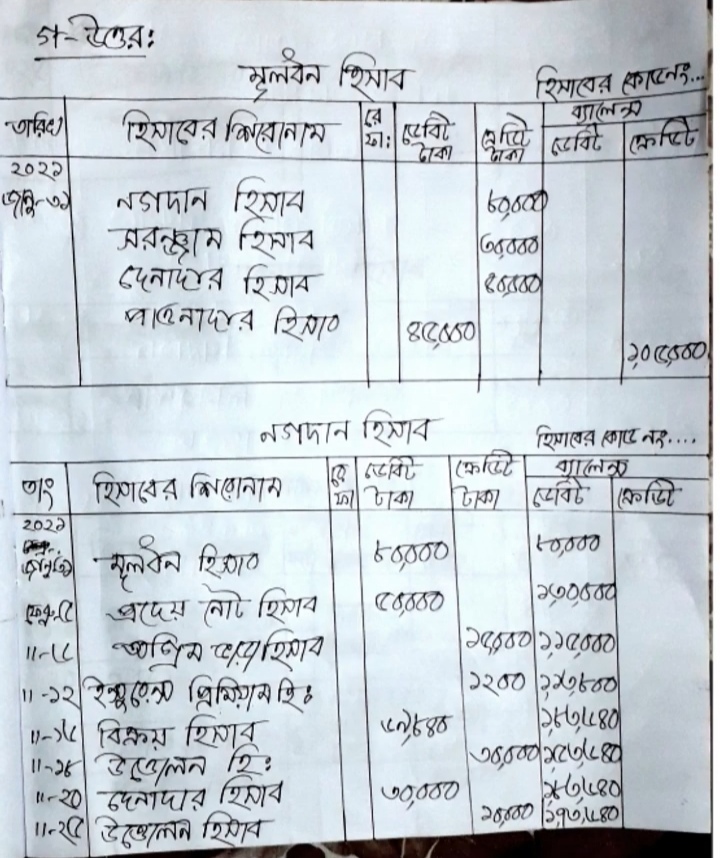 গ-উত্তর:
মূলধন হিসাব
হিসাবের কোড নং...
তারিখ হিসাবের শিরোনাম রে ফা: ডেবিট টাকা ক্রেডিট টাকা ব্যালেন্স ডেবিট ক্রেডিট
২০২১
জানু-৩১ নগদান হিসাব ৮০,০০০
সরঞ্জাম হিসাব ৩০,০০০
দেনাদার হিসাব ৪০,০০০
পাওনাদার হিসাব ৪৫,০০০
১,০৫,০০০
নগদান হিসাব
হিসাবের কোড নং....
তাং হিসাবের শিরোনাম রে ফা ডেবিট টাকা ক্রেডিট টাকা ব্যালেন্স ডেবিট ক্রেডিট
২০২১
মূলধন হিসাব ৮০,০০০ ৮০,০০০
প্রদেয় নোট হিসাব ৫০,০০০ ১,৩০,০০০
অগ্রিম হিসাব ১৫,০০০ ১,১৫,০০০
"-১২ ইন্সুরেন্স প্রিমিয়াম হিঃ ১২০০ ১,১৩,৮০০
বিক্রয় হিসাব
"-১৮ উত্তোলন হিঃ ৩০,০০০
"-২০ দেনাদার হিসাব ৩০,০০০
"-২৫ উত্তোলন হিসাব ১০,০০০